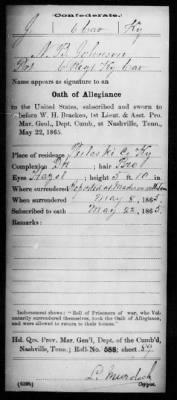 Confederate.
J 6 Cav Ky
N. B. Johnson
Pvt 6 Regt Ky Cav
Name appears as signature to an
Oath of Allegiance
to the United States, subscribed and sworn to
before W. H. Bracken, 1st Lieut. & Asst. Pro.
Mar. Genl., Dept. Cumb., at Nashville, Tenn.,
May 22, 1865.
Place of residence Pulaski Co Ky
Complexion ; hair
Eyes Hazel ; height 5 ft. 10 in.
Where surrendered Reported at
When surrendered May 8, 1865.
Subscribed to oath May 22, 1865.
Indorsement shows: "Roll of Prisoners of war, who voluntarily surrendered themselves, took the Oath of Allegiance, and were allowed to return to their homes."
Hd. Qrs. Prov. Mar. Gen'l, Dept. of the Cumb'd,
Nashville, Tenn.; Roll No. 588; sheet
L. Murdock
Copyist.